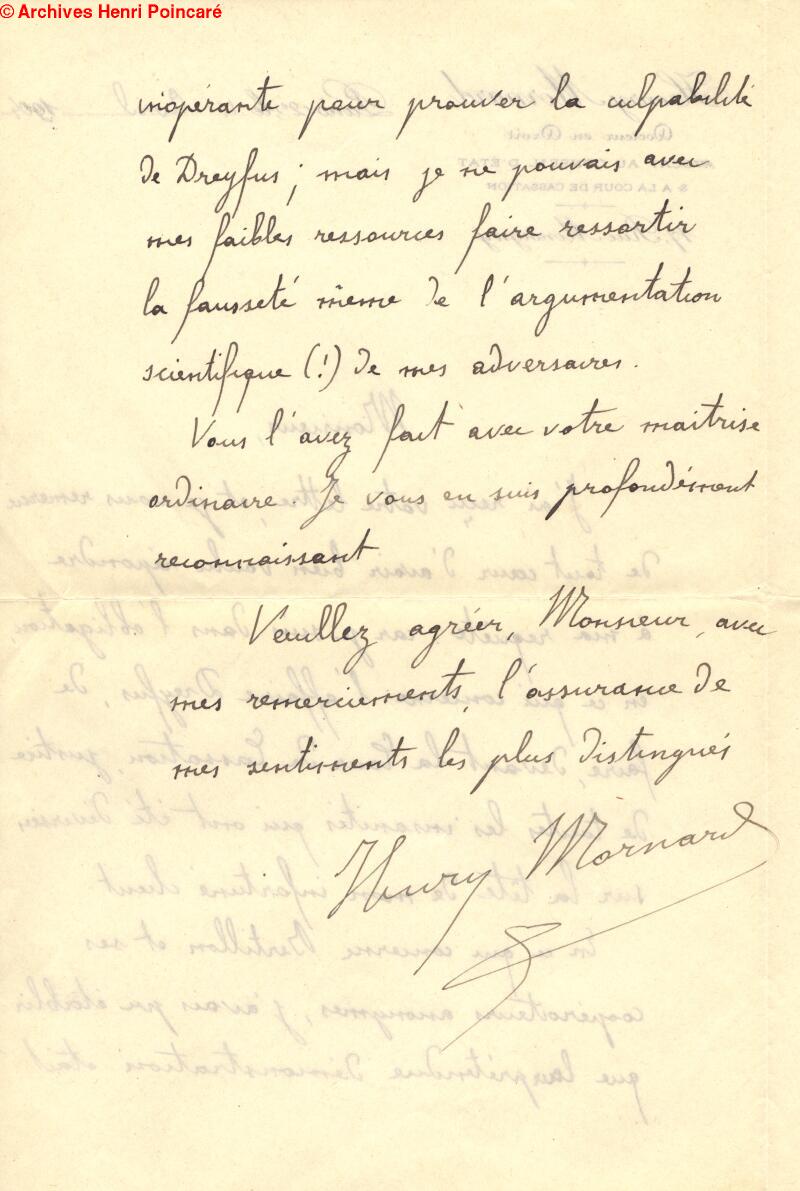 © Archives Henri Poincaré
inopérante pour prouver la culpabilité
de Dreyfus ; mais je ne pouvais avec
mes faibles ressources faire ressortir
la fausseté même de l'argumentation
scientifique (!) de mes adversaires.
Vous l'avez fait avec votre maitrise
ordinaire. Je vous en suis profondément
reconnaissant
Veuillez agréer, Monsieur, avec
mes remerciements, l'assurance de
mes sentiments les plus distingués
Henry Mornard